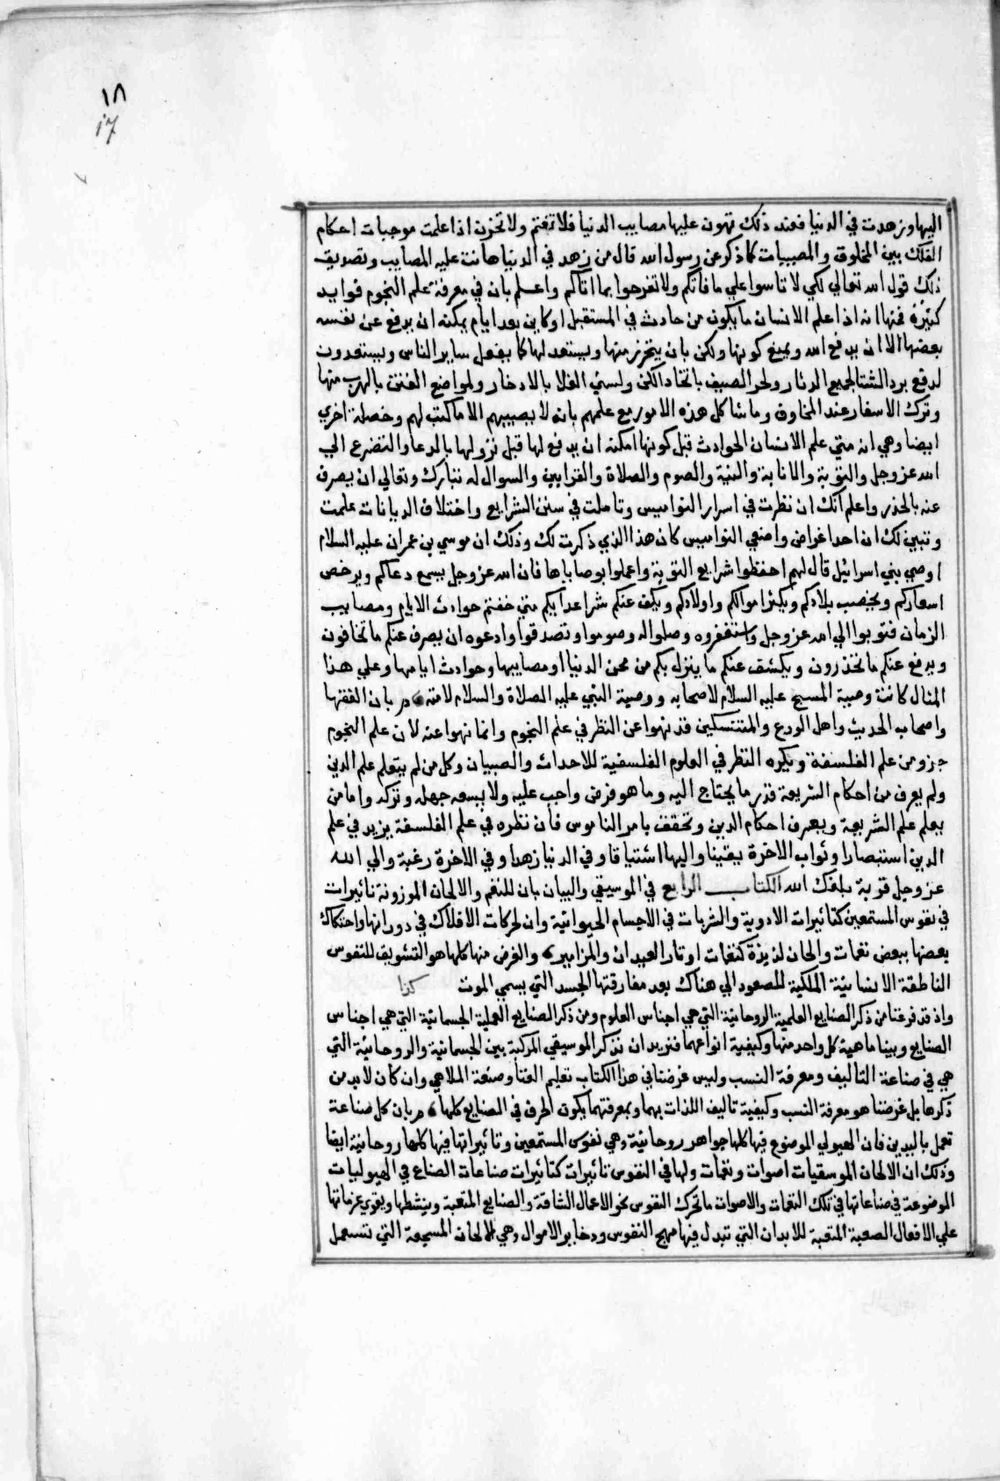 ١٨
17
اليها وزهدت في الدنيا فعند ذلك تهون عليها مصايب الدنيا فلا تغتم ولا تحزن اذا علمت موجبات احكام
الفلك بين المخلوق والمصيبات كما ذكر عن رسول الله قال من زهد في الدنيا هانت عليه المصايب وتصديق
ذلك قول الله تعالي لكي لا تاسوا علي ما فاتكم ولا تفرحوا بما اتاكم واعلم بان في معرفة علم النجوم فوايد
كثيرة فمنها انه اذا علم الانسان ما يكون من حادث في المستقبل او كاين بعد ايام يمكنه ان يدفع عن نفسه
بعضها الا ان يدفع الله ويمنع كونها ولكن بان يتحرز منها ويستعد لها كما يفعل ساير الناس ويستعدون
لدفع برد الشتا بجميع الدثار ولحر الصيف باتخاذ الكن ولسني الغلا بالادخار ولمواضع الفتن بالهرب منها
وترك الاسفار عند المخاوف وما شاكل هذه الامور مع علمهم بانه لا يصيبهم الا ما كتب لهم وخصلة اخري
ايضا وهي انه متي علم الانسان الحوادث قبل كونها امكنه ان يدفع لها قبل نزولها بالدعا والتضرع الي
الله عز وجل والتوبة والانابة والنية والصوم والصلاة والقرابين والسوال له تبارك وتعالي ان يصرف
عنه بالحذر واعلم انك ان نظرت في اسرار النواميس وتاملت في سنن الشرايع واختلاف الديانات علمت
وتبين لك ان احد اغراض واضعي النواميس كان هذا الذي ذكرت لك وذلك ان موسي بن عمران عليه السلام
اوصي بني اسرائيل قال لهم احفظوا شرايع التوبة واعملوا بوصاياها فان الله عز وجل يسمع دعاكم ويرخص
اسعاركم ويخصب بلادكم ويكثر اموالكم واولادكم ويكف عنكم شر اعدايكم متي خفتم حوادث الايام ومصايب
الزمان فتوبوا الي الله عز وجل واستغفروه وصلوا له وصوموا وتصدقوا وادعوه ان يصرف عنكم ما تخافون
ويدفع عنكم ما تحذرون ويكشف عنكم ما ينزل بكم من محن الدنيا او مصايبها وحوادث ايامها وعلي هذا
المثال كانت وصية المسيح عليه السلام لاصحابه ووصية النبي عليه الصلاة والسلام لامته بان الفقها
واصحاب الحديث واهل الورع والمتنسكين قد نهوا عن النظر في علم النجوم وانما نهوا عنه لان علم النجوم
جزو من علم الفلسفة ويكره النظر في العلوم الفلسفية للاحداث والصبيان وكل من لم يتعلم علم الدين
ولم يعرف من احكام الشريعة قدر ما يحتاج اليه وما هو فرض واجب عليه ولا يسعه جهله وتركه واما من
يعلم علم الشريعة ويعرف احكام الدين وتحقق بامر الناموس فان نظره في علم الفلسفة يزيد في علم
الدين استبصارا وثواب الاخرة يقينا واليها اشتياقا وفي الدنيا زهدا وفي الاخرة رغبة والي الله
عز وجل قربة بلغك الله الكتاب الرابع في الموسيقي والبيان بان للنغم والالحان الموزونة تاثيرات
في نفوس المستمعين كتاثيرات الادوية والشربات في الاجسام الحيوانية وان لحركات الافلاك في دورانها واحتكاك
بعضها ببعض نغمات والحان لذيذة كنغمات اوتار العيدان والمزامير والغرض منها كلها هو التشويق للنفوس
الناطقة الانسانية الملكية للصعود الي هناك بعد مفارقتها الجسد التي يسمي الموت كذا
واذ قد فرغنا من ذكر الصنايع العلمية الروحانية التي هي اجناس العلوم ومن ذكر الصنايع العملية الجسمانية التي هي اجناس
الصنايع وبينا ماهية كل واحد منها وكيفية انواعهما فنريد ان نذكر الموسيقي المركبة بين الجسمانية والروحانية التي
هي في صناعة التاليف ومعرفة النسب وليس غرضنا في هذا الكتاب تعليم الغنا وصنعة الملاهي وان كان لابد من
ذكرها بل غرضنا هو معرفة النسب وكيفية تاليف اللذات بهما وبمعرفتهما يكون الحرف في الصنايع كلها بان كل صناعة
تعمل باليدين فان الهيولي الموضوع فيها كلها جواهر روحانية وهي نفوس المستمعين وتاثيراتها فيها كلها روحانية ايضا
وذلك ان الالحان الموسقيات اصوات ونغمات ولها في النفوس تاثيرات كتاثيرات صناعات الصناع في الهيوليات
الموضوعة في صناعاتها في تلك النغمات والاصوات ما تحرك النفوس نحو الاعمال الشاقة والصنايع المتعبة وينشطها ويقوي عزماتها
علي الافعال الصعبة المتعبة للابدان التي تبدل فيها مهج النفوس وذخاير الاموال وهي الالحان المشجعة التي تستعمل